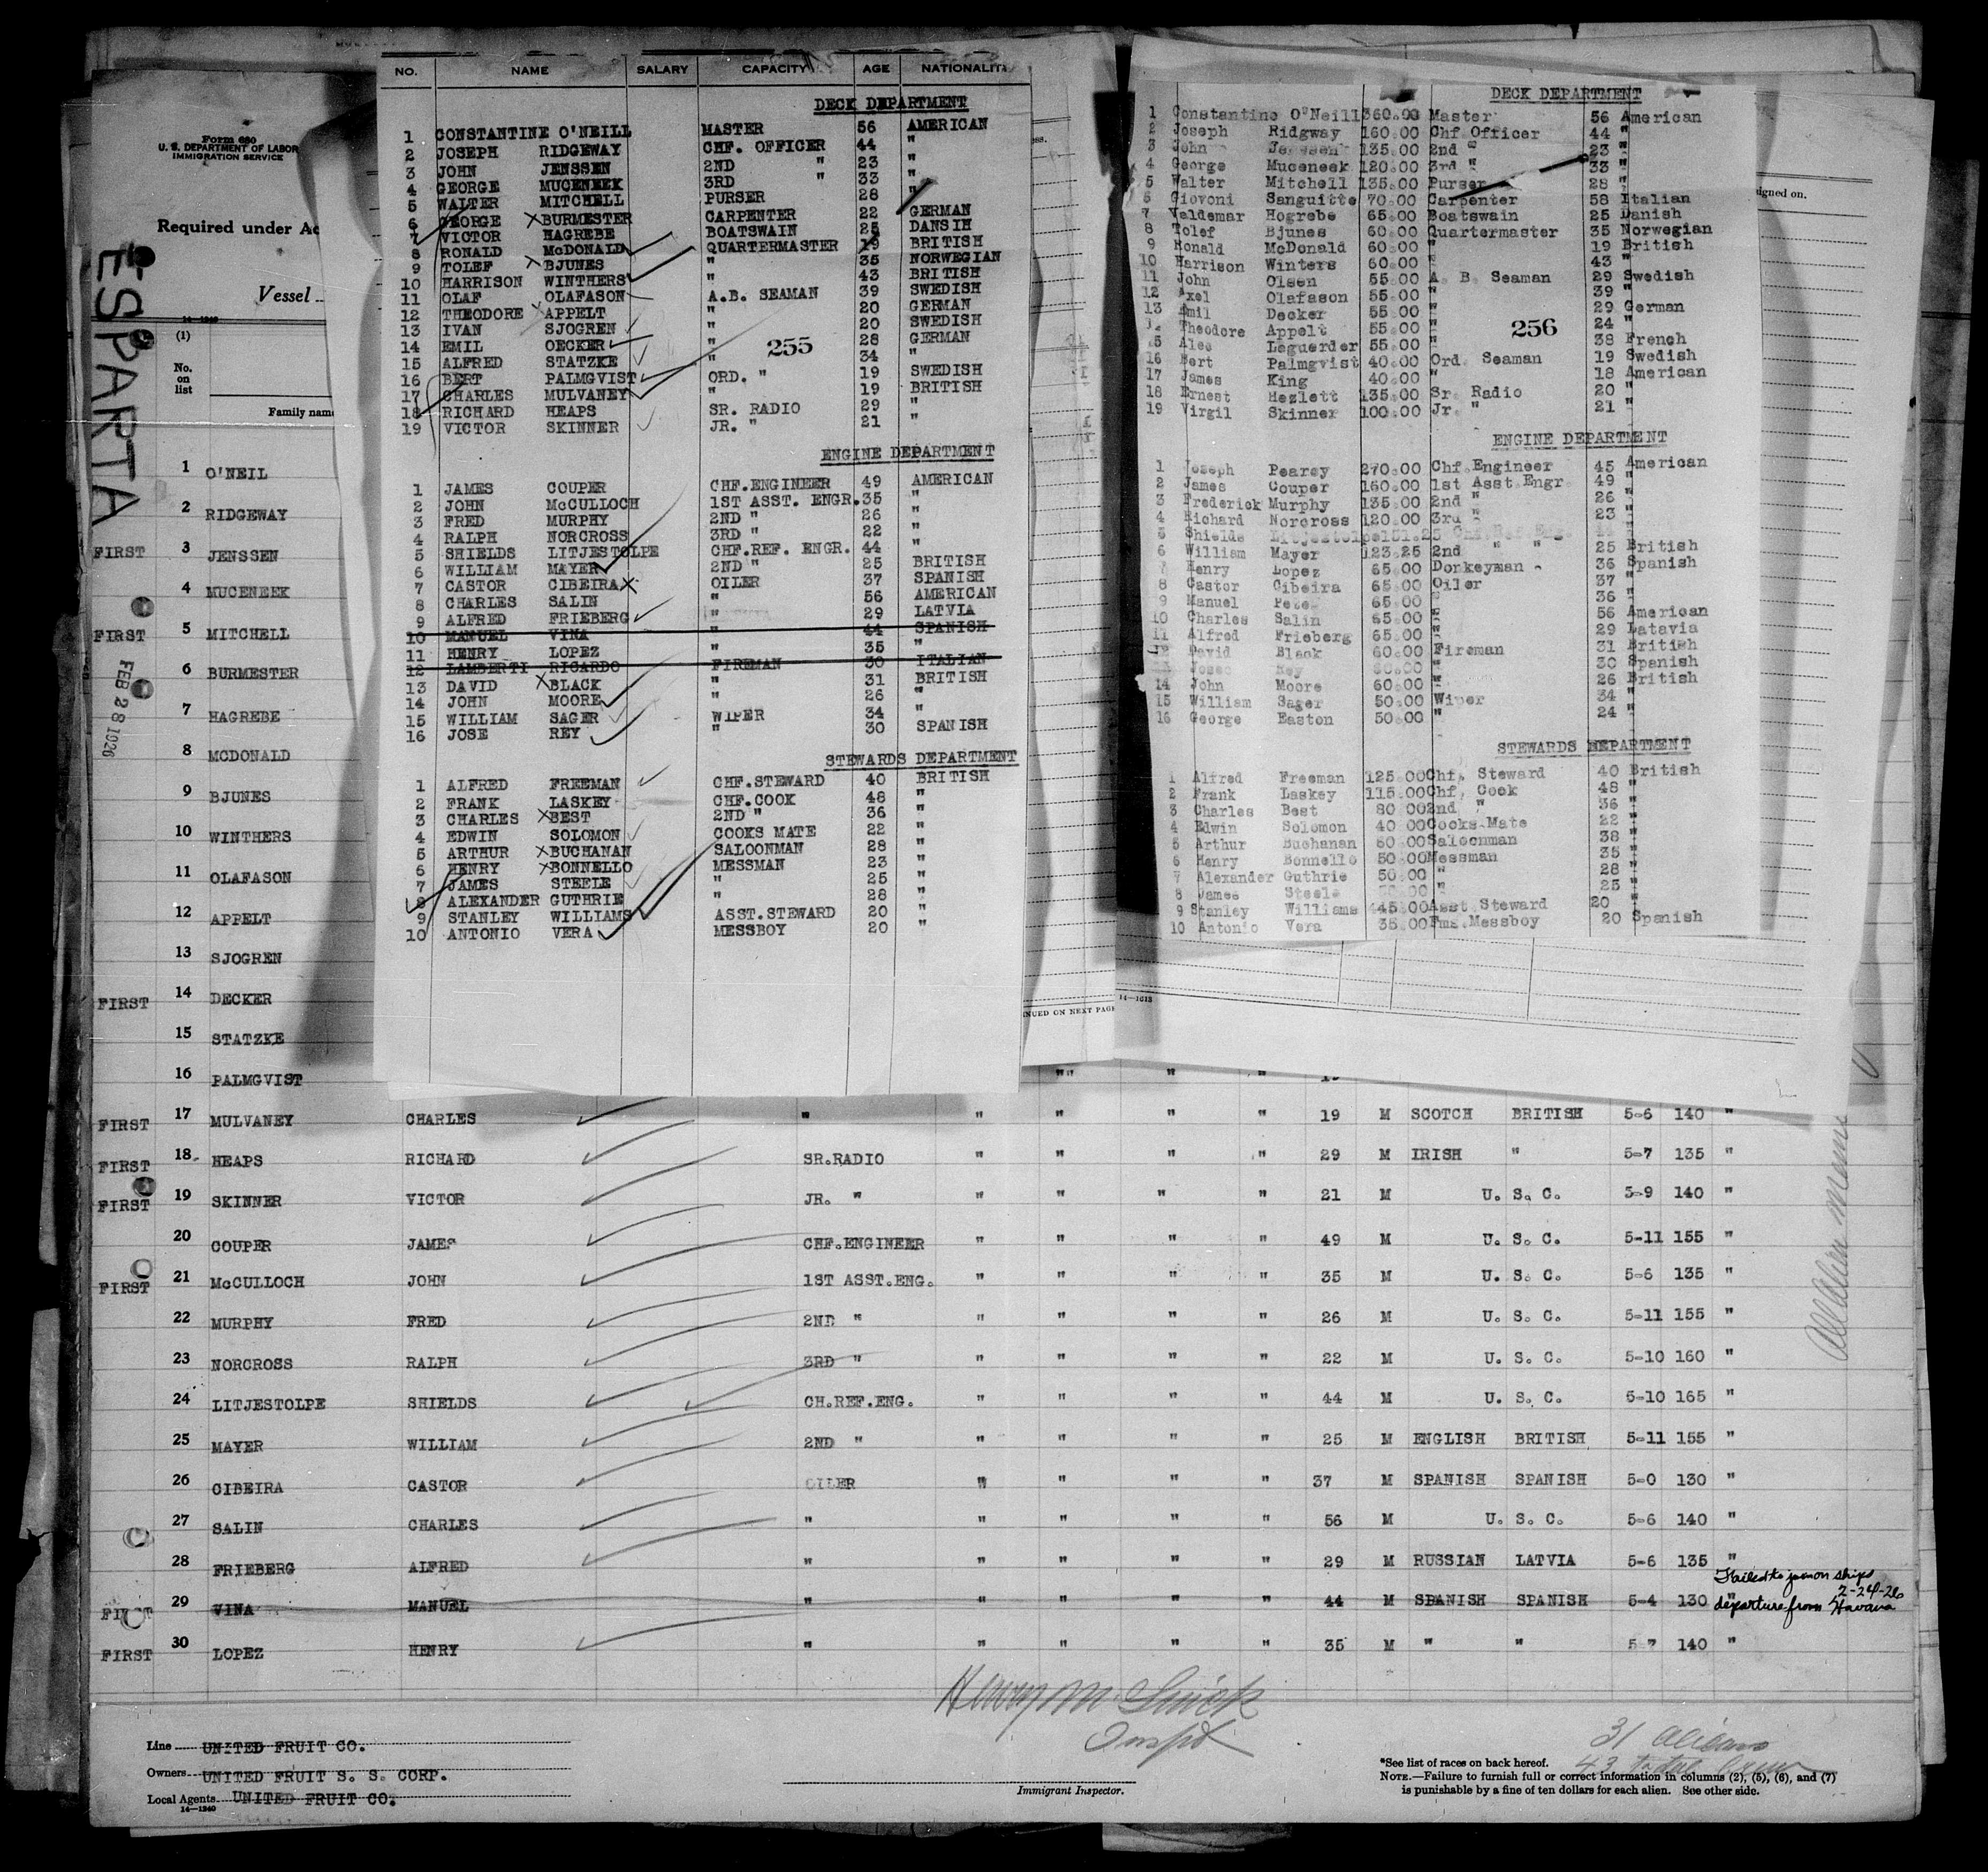 Form 680
U. S. DEPARTMENT OF LABOR
IMMIGRATION SERVICE
Required under Ac
Vessel
14—1240
(1)
No.
on
list
Family name
ESPARTA
FEB 28 1926
NO. NAME SALARY CAPACITY AGE NATIONALIT
DECK DEPARTMENT
1 CONSTANTINE O'NEILL MASTER 56 AMERICAN
2 JOSEPH RIDGEWAY CHF. OFFICER 44 "
3 JOHN JENSSEN 2ND " 23 "
4 GEORGE MUCENEEK 3RD " 33 "
5 WALTER MITCHELL PURSER 28 "
6 GEORGE X BURMESTER CARPENTER 22 GERMAN
7 VICTOR HAGREBE BOATSWAIN 25 DANSIH
8 RONALD McDONALD QUARTERMASTER 19 BRITISH
9 TOLEF X BJUNES " 35 NORWEGIAN
10 HARRISON WINTHERS " 43 BRITISH
11 OLAF OLAFASON A.B. SEAMAN 39 SWEDISH
12 THEODORE X APPELT " 20 GERMAN
13 IVAN SJOGREN " 20 SWEDISH
14 EMIL OECKER " 28 GERMAN
15 ALFRED STATZKE " 34 "
255
16 BERT PALMGVIST ORD. " 19 SWEDISH
17 CHARLES MULVANEY " 19 BRITISH
18 RICHARD HEAPS SR. RADIO 29 "
19 VICTOR SKINNER JR. " 21 "
ENGINE DEPARTMENT
1 JAMES COUPER CHF.ENGINEER 49 AMERICAN
2 JOHN McCULLOCH 1ST ASST. ENGR. 35 "
3 FRED MURPHY 2ND " 26 "
4 RALPH NORCROSS 3RD " 22 "
5 SHIELDS LITJESTOLPE CHF.REF. ENGR. 44 "
6 WILLIAM MAYER 2ND " 25 BRITISH
7 CASTOR CIBEIRA X OILER 37 SPANISH
8 CHARLES SALIN " 56 AMERICAN
9 ALFRED FRIEBERG " 29 LATVIA
10 MANUEL VINA " 44 SPANISH
11 HENRY LOPEZ " 35 "
12 LAMBERTI RICARDO FIREMAN 30 ITALIAN
13 DAVID X BLACK " 31 BRITISH
14 JOHN MOORE " 26 "
15 WILLIAM SAGER WIPER 34 "
16 JOSE REY " 30 SPANISH
STEWARDS DEPARTMENT
1 ALFRED FREEMAN CHF.STEWARD 40 BRITISH
2 FRANK LASKEY CHF.COOK 48 "
3 CHARLES X BEST 2ND " 36 "
4 EDWIN SOLOMON COOKS MATE 22 "
5 ARTHUR X BUCHANAN SALOONMAN 28 "
6 HENRY X BONNELLO MESSMAN 23 "
7 JAMES STEELE " 25 "
8 ALEXANDER GUTHRIE " 28 "
9 STANLEY WILLIAMS ASST.STEWARD 20 "
10 ANTONIO VERA MESSBOY 20 "
DECK DEPARTMENT
1 Constantino O'Neill 360.00 Master 56 American
2 Joseph Ridgway 160.00 Chf Officer 44 "
3 John Jenssen 135.00 2nd " 23 "
4 George Muceneek 120.00 3rd " 33 "
5 Walter Mitchell 135.00 Purser 28 "
6 Giovoni Sanguitte 70.00 Carpenter 58 Italian
7 Valdemar Hogrebe 65.00 Boatswain 25 Danish
8 Tolef Bjunes 60.00 Quartermaster 35 Norwegian
9 Ronald McDonald 60.00 " 19 British
10 Harrison Winters 60.00 " 43 "
11 John Olsen 55.00 A. B. Seaman 29 Swedish
12 Axel Olafason 55.00 " 39 "
13 Emil Decker 55.00 " 29 German
Theodore Appelt 55.00 " 24 "
256
5 Alec Leguerder 55.00 " 38 French
16 Bert Palmgvist 40.00 Ord. Seaman 19 Swedish
17 James King 40.00 " 18 American
18 Ernest Hezlett 135.00 Sr. Radio 20 "
19 Virgil Skinner 100.00 Jr. " 21 "
ENGINE DEPARTMENT
1 Joseph Pearcy 270.00 Chf.Engineer 45 American
2 James Couper 160.00 1st Asst.Engr. 49 "
3 Frederick Murphy 135.00 2nd " 26 "
4 Richard Norcross 120.00 3rd " 23 "
5 Shields Litjestolpe 151.25 Chf.Ref.Eng.
6 William Mayer 123.25 2nd " " 25 British
Henry Lopez 65.00 Donkeyman 36 Spanish
8 Castor Cibeira 65.00 Oiler 37 "
9 Manuel 65.00 " 36 "
10 Charles Salin 65.00 " 56 American
11 Alfred Frieberg 65.00 " 29 Latavia
12 David Black 60.00 Fireman 31 British
Rey 60.00 " 30 Spanish
14 John Moore 60.00 " 26 British
15 William Sager 50.00 Wiper 34 "
16 George Easton 50.00 " 24 "
STEWARDS DEPARTMENT
1 Alfred Freeman 125.00 Chf. Steward 40 British
2 Frank Laskey 115.00 Chf. Cook 48 "
3 Charles Best 80 00 2nd " 36 "
4 Edwin Solomon 40 00 Cooks Mate 22 "
5 Arthur Buchanan 60.00 Saloonman 38 "
6 Henry Bonnello 50.00 Messman 35 "
7 Alexander Guthrie 50.00 " 28 "
8 James Steele " 25 "
9 Stanley Williams 445.00 Asst Steward 20 "
10 Antonio Vera 35.00 Fms.Messboy 20 Spanish
igned on.
14—1613
INUED ON NEXT PAGE
1 O'NEIL
2 RIDGEWAY
FIRST 3 JENSSEN
4 MUCENEEK
FIRST 5 MITCHELL
6 BURMESTER
7 HAGREBE
8 MCDONALD
9 BJUNES
10 WINTHERS
11 OLAFASON
12 APPELT
13 SJOGREN
FIRST 14 DECKER
15 STATZKE
16 PALMGVIST " " "
FIRST 17 MULVANEY CHARLES " " " " " 19 M SCOTCH BRITISH 5-6 140 "
FIRST 18 HEAPS RICHARD SR.RADIO " " " " 29 M IRISH " 5-7 135 "
FIRST 19 SKINNER VICTOR JR. " " " " " 21 M U. S. C. 5-9 140 "
20 COUPER JAMES CHF.ENGINEER " " " " 49 M U. S. C. 5-11 155 "
FIRST 21 McCULLOCH JOHN 1ST ASST.ENG. " " " " 35 M U. S. C. 5-6 135 "
22 MURPHY FRED 2ND " " " " " 26 M U. S. C. 5-11 155 "
23 NORCROSS RALPH 3RD " " " " " 22 M U. S. C. 5-10 160 "
24 LITJESTOLPE SHIELDS CH.REF.ENG. " " " " 44 M U. S. C. 5-10 165 "
25 MAYER WILLIAM 2ND " " " " " 25 M ENGLISH BRITISH 5-11 155 "
26 CIBEIRA CASTOR OILER " " " " 37 M SPANISH SPANISH 5-0 130 "
27 SALIN CHARLES " " " " " 56 M U. S. C. 5-6 140 "
28 FRIEBERG ALFRED " " " " " 29 M RUSSIAN LATVIA 5-6 135 "
FIRST 29 VINA MANUEL " " " " " 44 M SPANISH SPANISH 5-4 130 "
Failed to join on ships
2-24-26
departure from Havana
FIRST 30 LOPEZ HENRY " " " " " 35 M " " 5-7 140 "
Henry M.
Inspt
31 Aliens
43 total Crew
Line UNITED FRUIT CO.
Owners UNITED FRUIT S. S. CORP.
Local Agents UNITED FRUIT CO.
14—1240
Immigrant Inspector.
*See list of races on back hereof.
NOTE.—Failure to furnish full or correct information in columns (2), (5), (6), and (7)
is punishable by a fine of ten dollars for each alien. See other side.